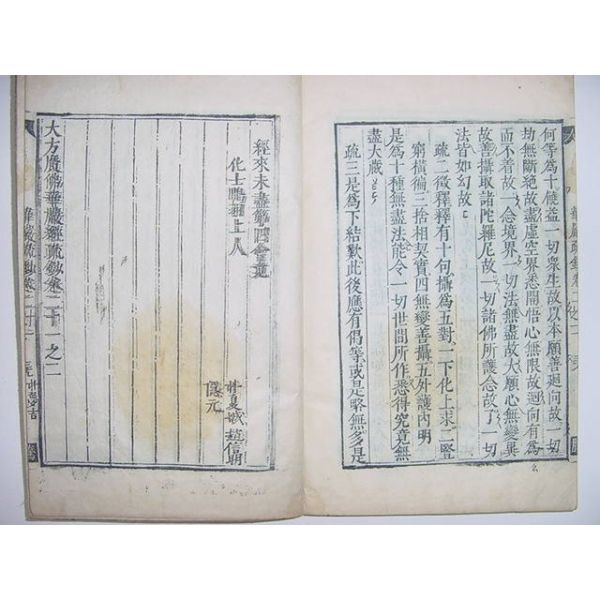 何等為十饒益一切眾生故以本願善廻向故一切
劫無斷絕故盡虛空界悉開悟心無限故廻向有為
而不着故一念境界一切法無盡故大願心無變異
故善攝取諸陀羅尼故一切諸佛所護念故了一切
法皆如幻故
疏二徵釋釋有十句攝為五對一下化上求二堅
窮橫徧三捨相契實四無變善攝五外護內明
是為十種無盡法能令一切世間所作悉得究竟無
盡大藏
疏三是為下結歎此後應有偈等或是略無多是
經來未盡
化士鵬翔上人
信朝
隱元
大方廣佛華嚴經疏鈔卷二十一之二